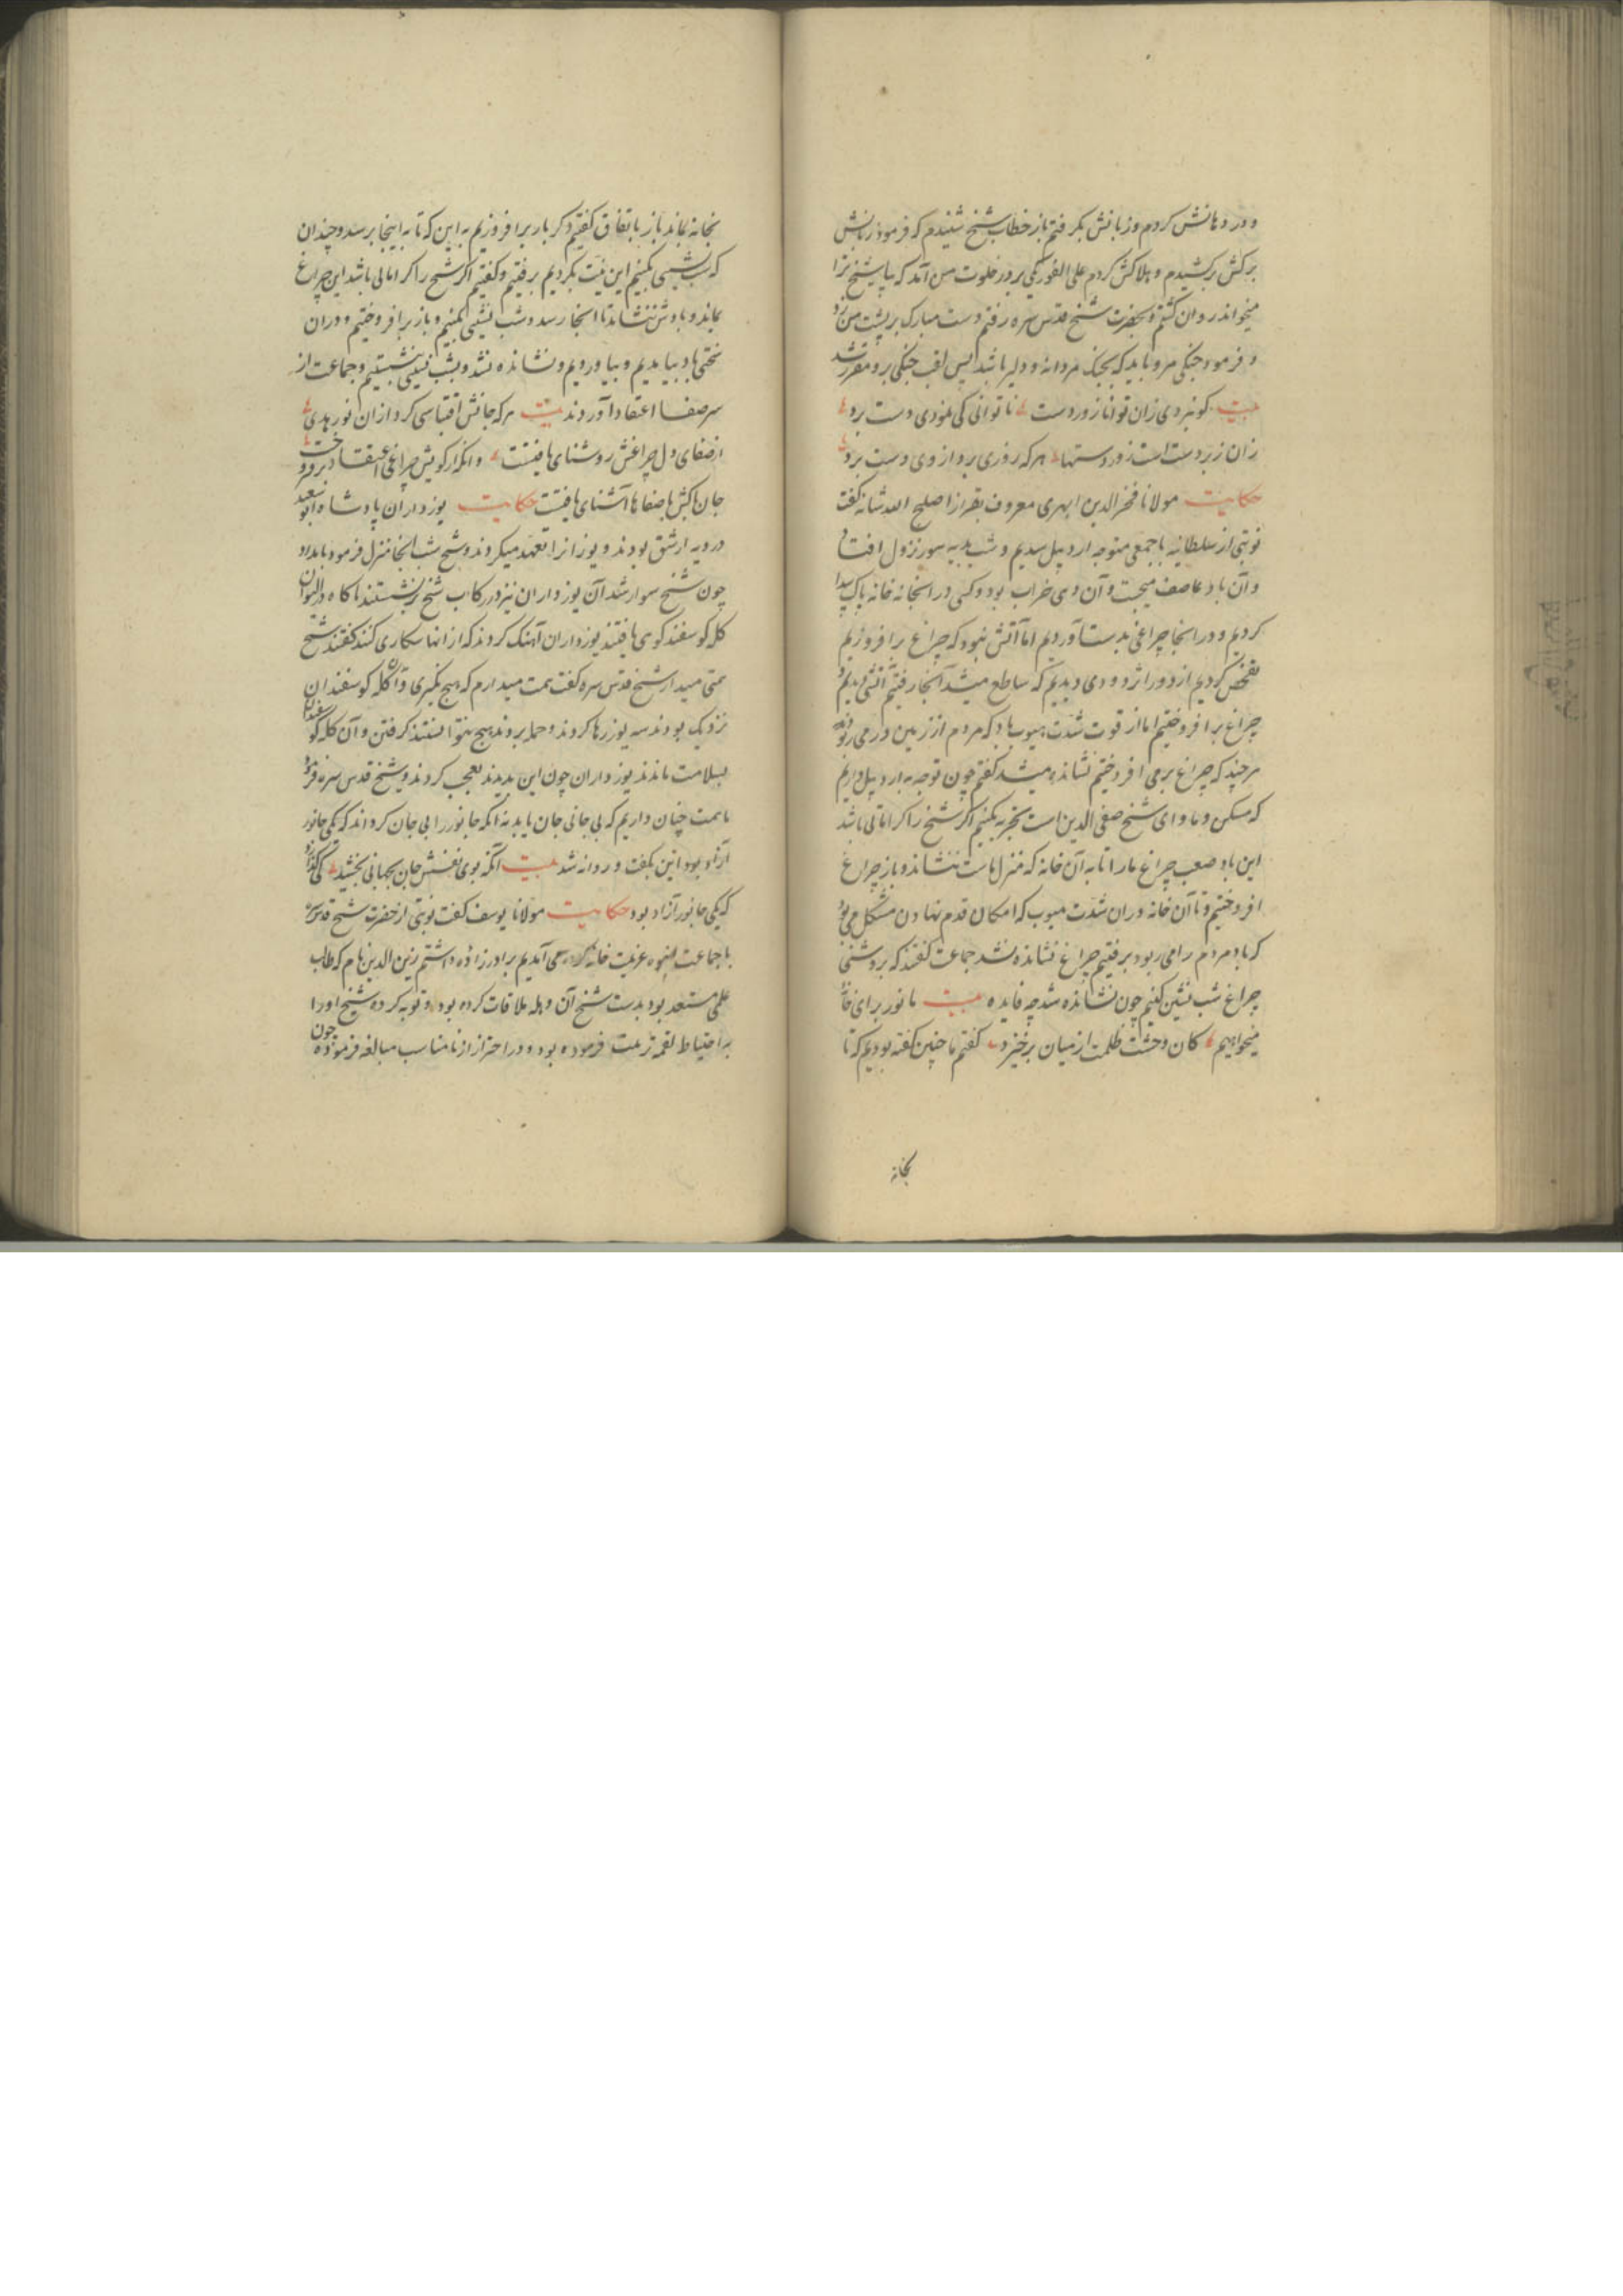 و در دهانش کردم و زبانش بکرفتم باز خطاب شیخ شنیدم که فرمود زبانش
برکش برکشیدم و هلاکش کردم علی الفور یکی بر در خلوت من آمد که بیا شیخ ترا
میخواند روان کشتم و بحضرت شیخ قدس سره رفتم دست مبارک بر پشت من زد
و فرمود جنکی مرو باید که بجنک مردانه و دلیر باشد پس لقب جنکی برو مقرر شد
بیت کو نبردی زان توانا زور دست ناتوانی کی نمودی دست برد
زان زبردست است زور دستها هر که روزی برد از وی دست برد
حکایت مولانا فخر الدین ابهری معروف بقزاز اصلح الله شانه کفت
نوبتی از سلطانیه با جمعی متوجه اردبیل شدیم و شب بدیه نزول افتاد
و آن باد عاصف میجست و آن دی خراب بود و کسی در انجا نه خانه پاک پیدا
کردیم و در انجا چراغی بدست آوردیم اما آتش نبود که چراغ برافروزیم
تفحص کردیم از دور اثر دودی دیدیم که ساطع میشد آنجا رفتیم آتشی دیدیم و
چراغ برافروختیم اما از قوت شدت هبوب باد که مردم از زمین در می ربود
هرچند که چراغ بر می افروختیم نشانده میشد کفتم چون توجه به اردبیل داریم
که مسکن و ماوای شیخ صفی الدین است تجربه بکنیم اکر شیخ را کراماتی باشد
این باد صعب چراغ ما را تا به آن خانه که منزل ماست ننشاند و باز چراغ
افروختیم و تا آن خانه در آن شدت هبوب که امکان قدم نهادن مشکل می بود
که باد مردم را می ربود برفتیم چراغ نشانده نشد جماعت کفتند که بروشنی
چراغ شب نشین کنیم چون نشانده شد چه فایده بیت ما نور برای خانه
میخواهیم کان وحشت ظلمت از میان برخیزد کفتم ما چنین کفته بودیم که تا
بخانه
بخانه بماند باز باتفاق کفتیم دکر بار برافروزیم به این که تا به اینجا برسد و چندان
که شب نشینی بکنیم این نیت بکردیم برفتیم و کفتیم اکر شیخ را کراماتی باشد این چراغ
بماند و بادش ننشاند تا انجا رسد و شب نشینی بکنیم و باز برافروختیم و در آن
سختی باد بیامدیم و بیاوردیم و نشانده نشد و بشب نشینی بنشستیم و جماعت از
سر صفا اعتقاد آوردند بیت هر که جانش اقتباسی کرد از آن نور هدی
از صفای دل چراغش روشنای یافتست وانکه از کویش چراغی اعتقاد برفروخت
جان پاکش با صفاها آشنای یافتست حکایت یوزداران پادشاه ابو سعید
در دیه ارشق بودند و یوزانرا تعهد میکردند و شیخ شب انجا منزل فرمود بامداد
چون شیخ سوار شد آن یوزداران نیز در رکاب شیخ برنشستند ناکاه
کله کوسفند کوهی یافتند یوزداران آهنک کردند که از آنها شکاری کنند کفتند شیخ
همتی میدار شیخ قدس سره کفت همت میدارم که هیچ نکیری و آن کله کوسفندان
نزدیک بودند سه یوز رها کردند و حمله بردند هیچ نتوانستند کرفتن و آن کله کوسفندان
بسلامت ماندند یوزداران چون این بدیدند تعجب کردند و شیخ قدس سره فرمود
ما همت چنان داریم که بی جانی جان یابد نه آنکه جانور را بی جان کرداند که یکی جانور
آزاد بود این بکفت و روانه شد بیت آنکه بوی نفسش جان بجهانی بخشید کی
که یکی جانور آزاد بود حکایت مولانا یوسف کفت نوبتی از حضرت شیخ قدس سره
با جماعت انبوه عزیمت خانه کرده می آمدیم برادرزاده داشتم زین الدین نام که طالب
علمی مستعد بود بدست شیخ آن وهله ملاقات کرده بود و توبه کرده شیخ او را
به احتیاط لقمه تربیت فرموده بود و در احتراز از نامناسب مبالغه فرموده چون